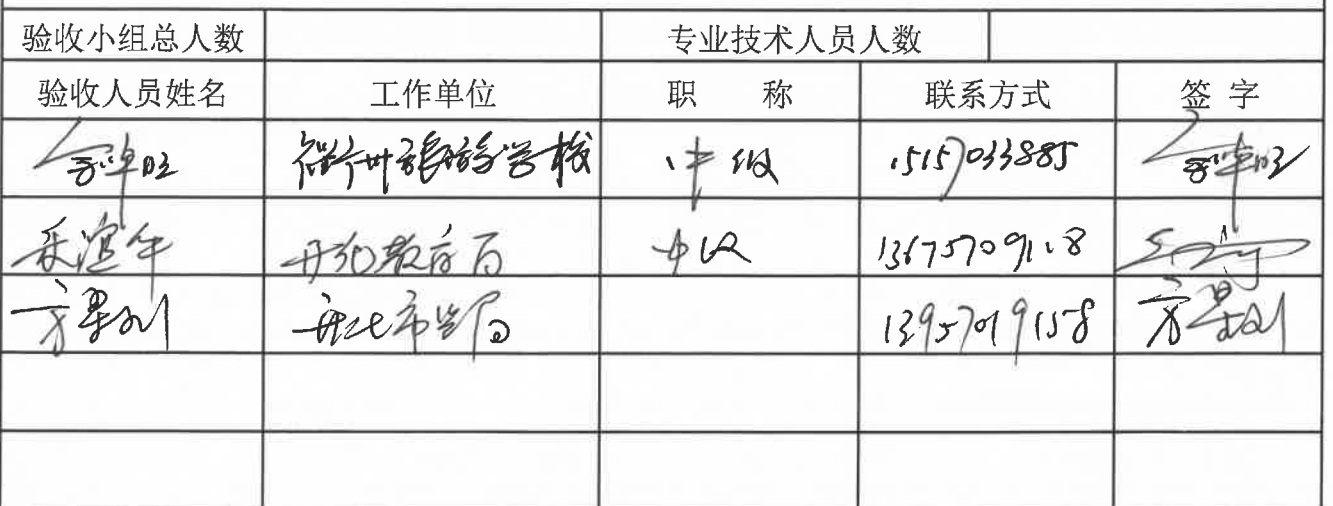 验收小组总人数 专业技术人员人数
验收人员姓名 工作单位 职 称 联系方式 签 字
衢州旅游学校 中级 15157033885
开化教育局 中级 13675709118
方 开化市监局 13957019158 方